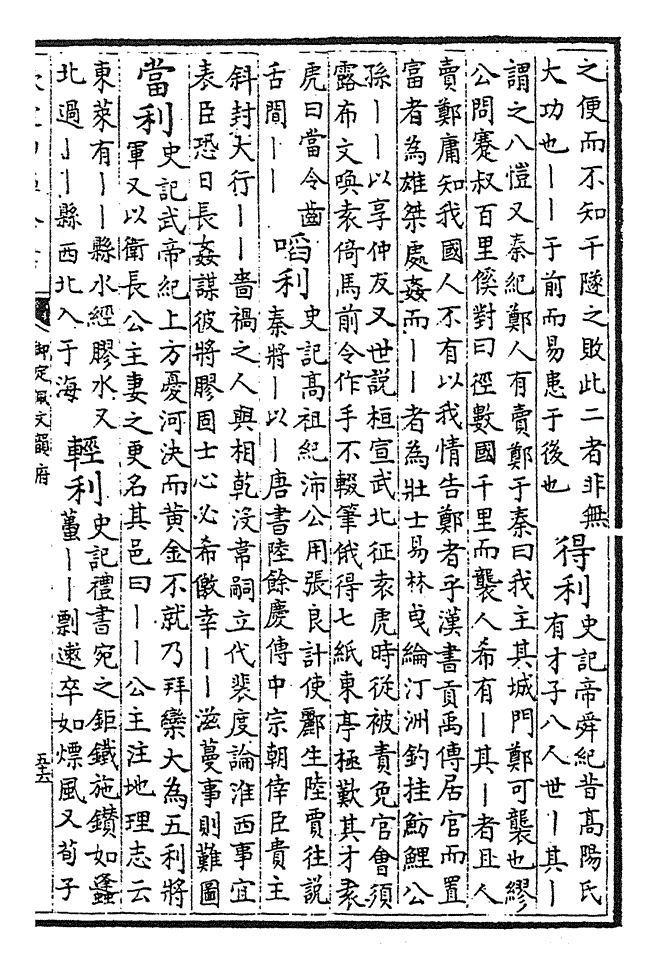 之便而不知干隧之敗此二者非無
大功也丨丨于前而易患于後也
得利
史記帝舜紀昔髙陽氏
有才子八人世丨其丨
謂之八愷又秦紀鄭人有賣鄭于秦曰我主其城門鄭可襲也繆
公問蹇叔百里傒對曰徑數國千里而襲人希有丨其丨者且人
賣鄭庸知我國人不有以我情告鄭者乎漢書貢禹傳居官而置
富者為雄桀處姦而丨丨者為壯士易林曳綸汀洲釣挂魴鯉公
孫丨丨以享仲友又世說桓宣武北征袁虎時從被責免官會須
露布文喚袁倚馬前令作手不輟筆俄得七紙東亭極歎其才袁
虎曰當令齒
舌間丨丨
啗利
史記髙祖紀沛公用張良計使酈生陸賈往說
秦將丨以丨唐書陸餘慶傳中宗朝倖臣貴主
斜封大行丨丨嗇禍之人與相乾沒常嗣立代裴度論淮西事宜
表臣恐日長姦謀彼將膠固士心必希儌幸丨丨滋蔓事則難圖
當利
史記武帝紀上方憂河決而黄金不就乃拜欒大為五利將
軍又以衛長公主妻之更名其邑曰丨丨公主注地理志云
東萊有丨丨縣水經膠水又
北過丨丨縣西北入于海
輕利
史記禮書宛之鉅鐵施鑽如蠭
蠆丨丨剽遬卒如熛風又荀子
御定佩文韻府
五十六